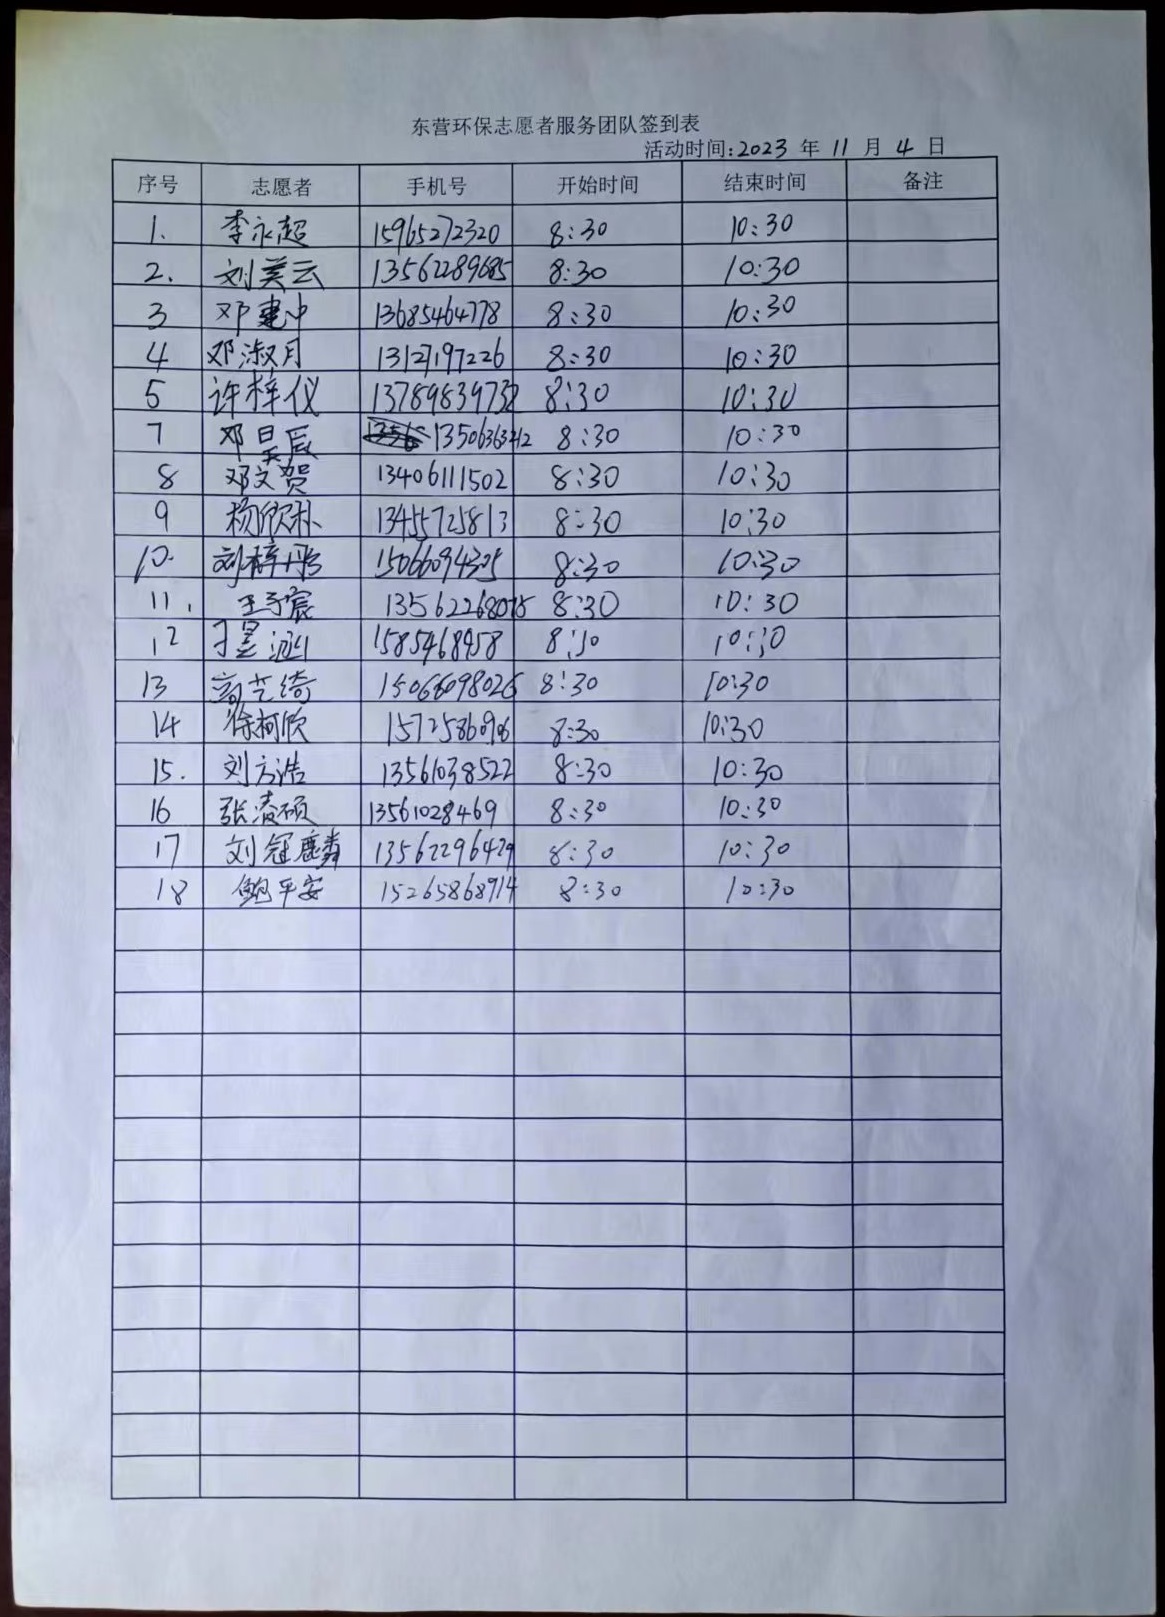 东营环保志愿者服务团队签到表
活动时间:2023 年 11 月 4 日
序号 志愿者 手机号 开始时间 结束时间 备注
1. 李永超 15965272320 8:30 10:30
2. 刘美云 13562289685 8:30 10:30
3 邓建中 13685464778 8:30 10:30
4 邓淑月 13127197226 8:30 10:30
5 许梓仪 13789839732 8:30 10:30
7 邓昊辰 13506363212 8:30 10:30
8 邓文贺 13406111502 8:30 10:30
9 杨欣朴 13455725813 8:30 10:30
10. 刘梓彤 15066094325 8:30 10:30
11. 王子宸 13562268075 8:30 10:30
12 8:30 10:30
13 高艺绮 15066098026 8:30 10:30
14 徐柯欣 8:30 10:30
15. 刘方浩 13561038522 8:30 10:30
16 张凌硕 13561028469 8:30 10:30
17 刘冠麟 13562296429 8:30 10:30
18 鲍平安 15265868914 8:30 10:30